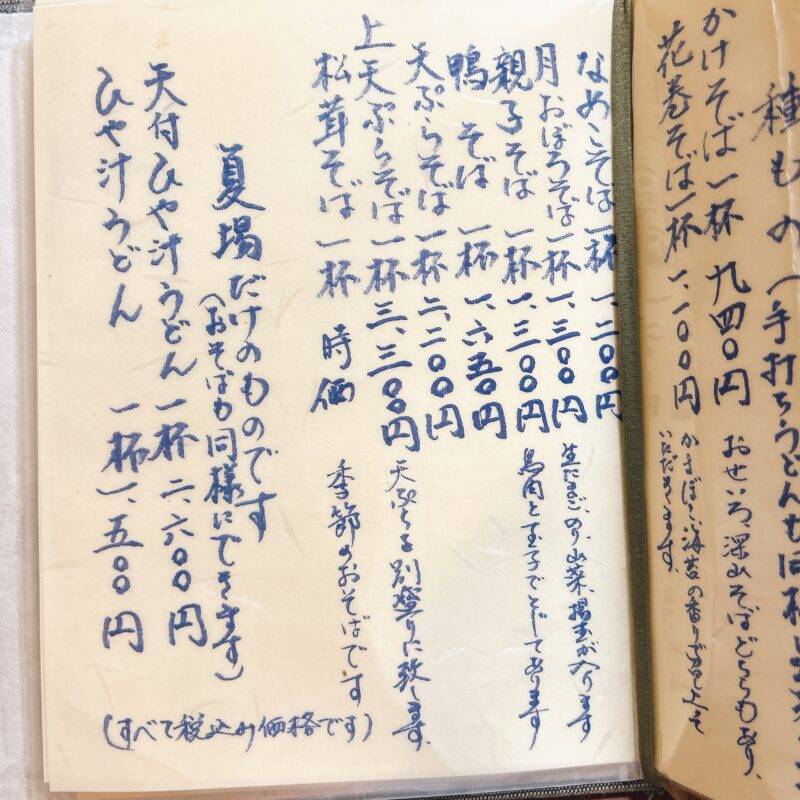 種もの（手打ちうどんも同様
かけそば 一杯 九四〇円 おせいろ、深山そばどちらもあり、
花巻そば 一杯 一、一〇〇円 かまぼこ、海苔の香りが
いただきます。
なめこそば 一杯 一、二〇〇円
月おぼろそば 一杯 一、三〇〇円 生たまご、のり、山菜、揚玉が入ります
親子そば 一杯 一、三〇〇円 鳥肉と玉子でとじてあります
鴨そば 一杯 一、六五〇円
天ぷらそば 一杯 二、二〇〇円
上天ぷらそば 一杯 三、三〇〇円 天ぷらを別盛りに致します。
松茸そば 一杯 時価 季節のおそばです
夏場だけのものです
（おそばも同様にできます）
天付ひや汁うどん 一杯 二、六〇〇円
ひや汁うどん 一杯 一、五〇〇円
（すべて税込み価格です）